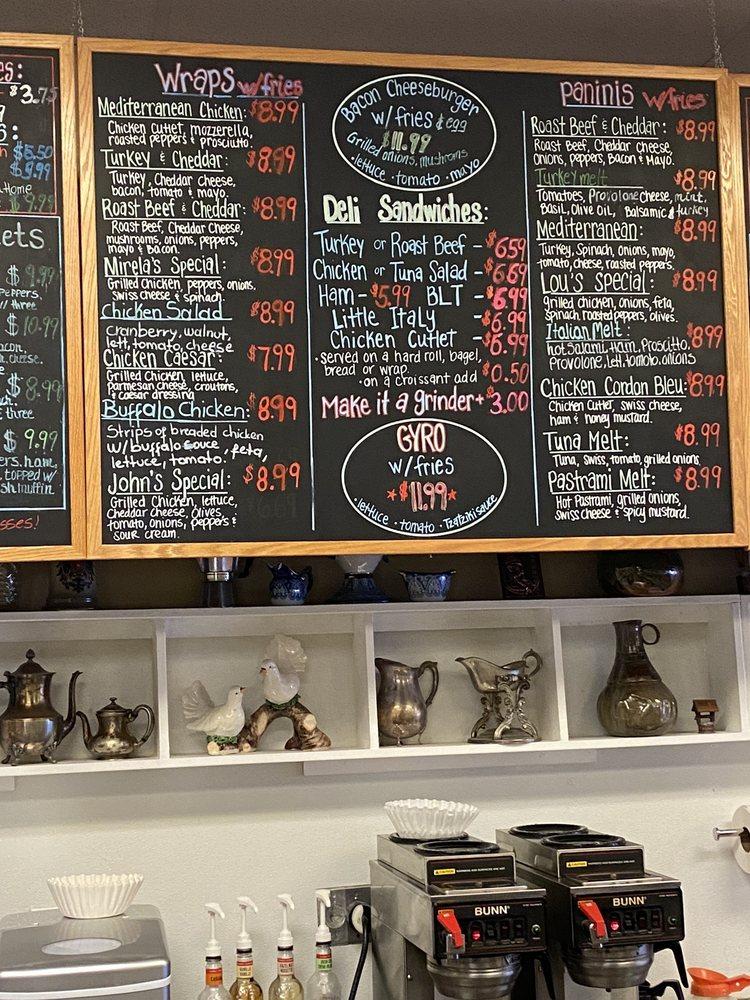 es:
$3.75
$5.50
$9.99
Home
$9.99
ets
$9.99
Peppers,
w/ three
$10.99
acon,
ch, cheese.
$8.99
& three
$9.99
ers, ham,
, topped w/
sh muffin
sses!
Wraps w/fries
Mediterranean Chicken: $8.99
Chicken Cutlet, mozzarella,
roasted peppers & prosciutto.
Turkey & Cheddar: $8.99
Turkey, Cheddar cheese,
bacon, tomato & mayo.
Roast Beef & Cheddar: $8.99
Roast Beef, Cheddar Cheese,
mushrooms, onions, peppers,
mayo & Bacon.
Mirela's Special: $8.99
Grilled chicken, peppers, onions,
Swiss cheese & spinach.
Chicken Salad $8.99
cranberry, walnut,
lett, tomato, cheese
Chicken Caesar: $7.99
Grilled Chicken, lettuce,
Parmesan cheese, croutons,
& caesar dressing
Buffalo Chicken: $8.99
Strips of breaded chicken
w/ buffalo sauce, feta,
lettuce, tomato.
John's Special: $8.99
Grilled Chicken, lettuce,
Cheddar Cheese, Olives,
tomato, onions, peppers &
sour cream.
Bacon Cheeseburger
w/fries & egg
$11.99
Grilled onions, mushrooms
• lettuce • tomato • mayo
Deli Sandwiches:
Turkey or Roast Beef - $6.59
Chicken or Tuna Salad - $6.69
Ham - $5.99 BLT - $6.99
Little Italy - $6.99
Chicken Cutlet - $6.99
• served on a hard roll, bagel,
bread or wrap.
• on a croissant add $0.50
Make it a grinder + $3.00
GYRO
w/fries
$11.99
• lettuce • tomato • Tzatziki sauce
Paninis w/fries
Roast Beef & Cheddar: $8.99
Roast Beef, Cheddar cheese,
onions, peppers, Bacon & Mayo.
Turkey melt $8.99
Tomatoes, Provolone cheese, mint,
Basil, Olive Oil, Balsamic & turkey
Mediterranean: $8.99
Turkey, Spinach, onions, mayo,
tomato, cheese, roasted peppers.
Lou's Special: $8.99
grilled chicken, onions, feta,
Spinach, roasted peppers, olives.
Italian Melt: $8.99
hot Salami, Ham, Prosciutto,
Provolone, lett, tomato, onions
Chicken Cordon Bleu: $8.99
Chicken Cutlet, swiss cheese,
ham & honey mustard.
Tuna Melt: $8.99
Tuna, Swiss, tomato, grilled onions
Pastrami Melt: $8.99
Hot Pastrami, grilled onions,
swiss cheese & spicy mustard.
BUNN
BUNN